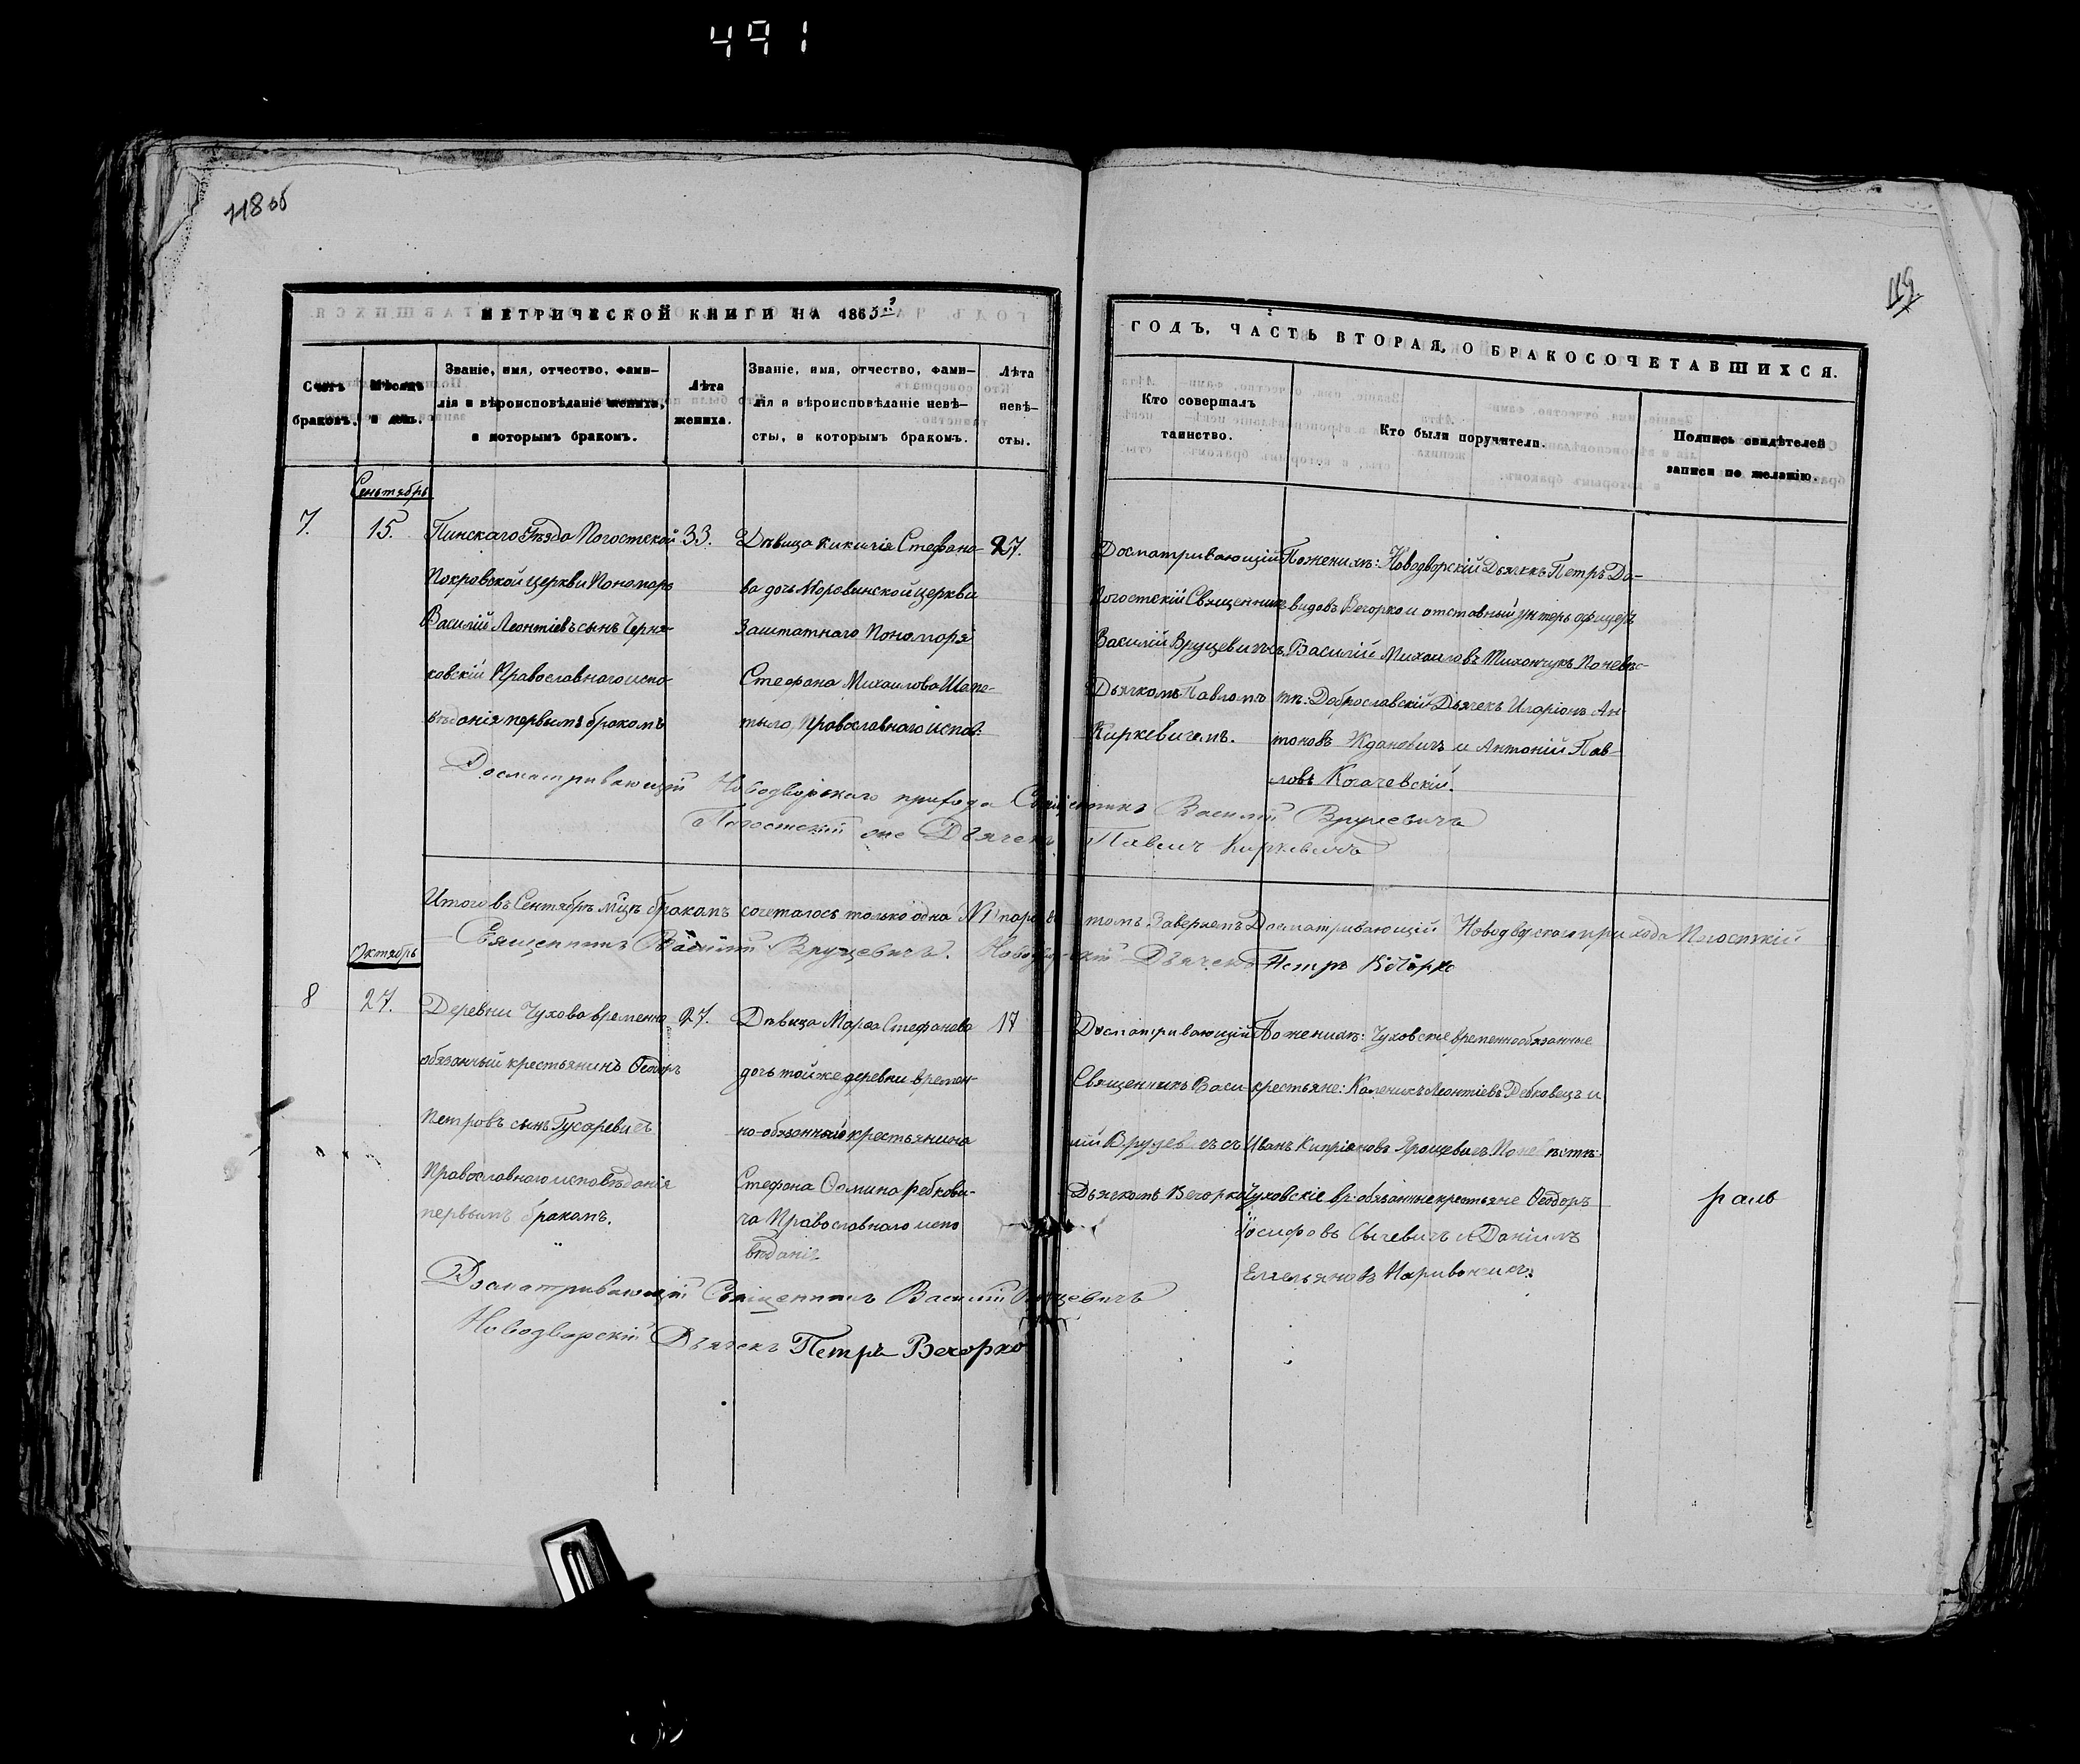 491
118 об
119
МЕТРИЧЕСКОЙ КНИГИ НА 1865й
ГОДЪ, ЧАСТЬ ВТОРАЯ, О БРАКОСОЧЕТАВШИХСЯ.
Счетъ
браковъ.
Мѣсяцъ
и день.
Званіе, имя, отчество, фами-
лія и вѣроисповѣданіе жениха,
и которымъ бракомъ.
Лѣта
жениха.
Званіе, имя, отчество, фами-
лія и вѣроисповѣданіе невѣ-
сты, и которымъ бракомъ.
Лѣта
невѣ-
сты.
Кто совершалъ
таинство.
Кто были поручители.
Подпись свидѣтелей
записи по желанію.
Сентябрь
7.
15.
Пинскаго Уѣзда Погостской
Покровской церкви Пономарь
Василій Леонтіевъ сынъ Черня-
ковскій Православнаго испо-
вѣданія первымъ бракомъ
33.
Дѣвица Кикилія Стефано-
ва дочь Моровинской церкви
Заштатнаго Пономаря
Стефана Михаилова Шапе-
тыло, Православнаго испов.
27.
Досматривающій
Погостскій Священникъ
Василій Вруцевичъ съ
Дьячкомъ Павломъ
Киркевичемъ.
По женихѣ: Новодворскій Дьячекъ Петръ Да-
видовъ Вечорко и отставный унтеръ офицеръ
Василій Михаиловъ Тихончукъ По невѣс-
тѣ: Доброславскій Дьячекъ Иларіонъ Ан-
тоновъ Ждановичъ и Антоній Пав-
ловъ Качевскій.
Досматривающій Новодворскаго прихода Священникъ Василій Вруцевичъ
Погостскій Дьячекъ Павелъ Киркевичъ
Итого въ Сентябрѣ мцѣ бракомъ сочеталось только одна №1 пара въ томъ заверяемъ Досматривающій Новодворскаго прихода Погостскій
Священникъ Василій Вруцевичъ. Новодворскій Дьячекъ Петръ Вечорко
Октябрь
8
27.
Деревни Чухова временно
обязанный крестьянинъ Ѳеодоръ
Петровъ сынъ Гусаревичъ
Православнаго исповѣданія
первымъ бракомъ.
27.
Дѣвица Марѳа Стефанова
дочь той же деревни времен-
но-обязаннаго крестьянина
Стефана Ѳомина Ребкови-
ча Православнаго испо
вѣданія
17
Досматривающій
Священникъ Васи-
лій Вруцевичъ съ
Дьячкомъ Вечорко
По женихѣ: Чуховскіе временнообязанные
крестьяне: Каленикъ Леонтіевъ Ребковецъ и
Иванъ Кипріановъ Ярошевичъ По невѣстѣ:
Чуховскіе вр: обязанные крестьяне Ѳеодоръ
Іосифовъ Сычевичъ и Даніилъ
Емельяновъ Наривончикъ.
Досматривающій Священникъ Василій Вруцевичъ
Новодворскій Дьячекъ Петръ Вечорко